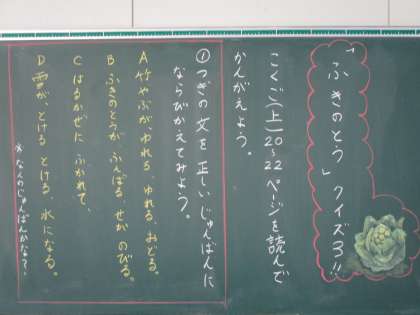 「ふきのとう」クイズ3!!
こくご(上)20~22ページを読んで
かんがえよう。
①つぎの文を正しいじゅんばんに
ならびかえてみよう。
A 竹やぶが、ゆれる、ゆれる、おどる。
B ふきのとうが、ふんばる、せがのびる。
C はるかぜにふかれて、
D 雪が、とける、とける、水になる。
※なんのじゅんばんかな?